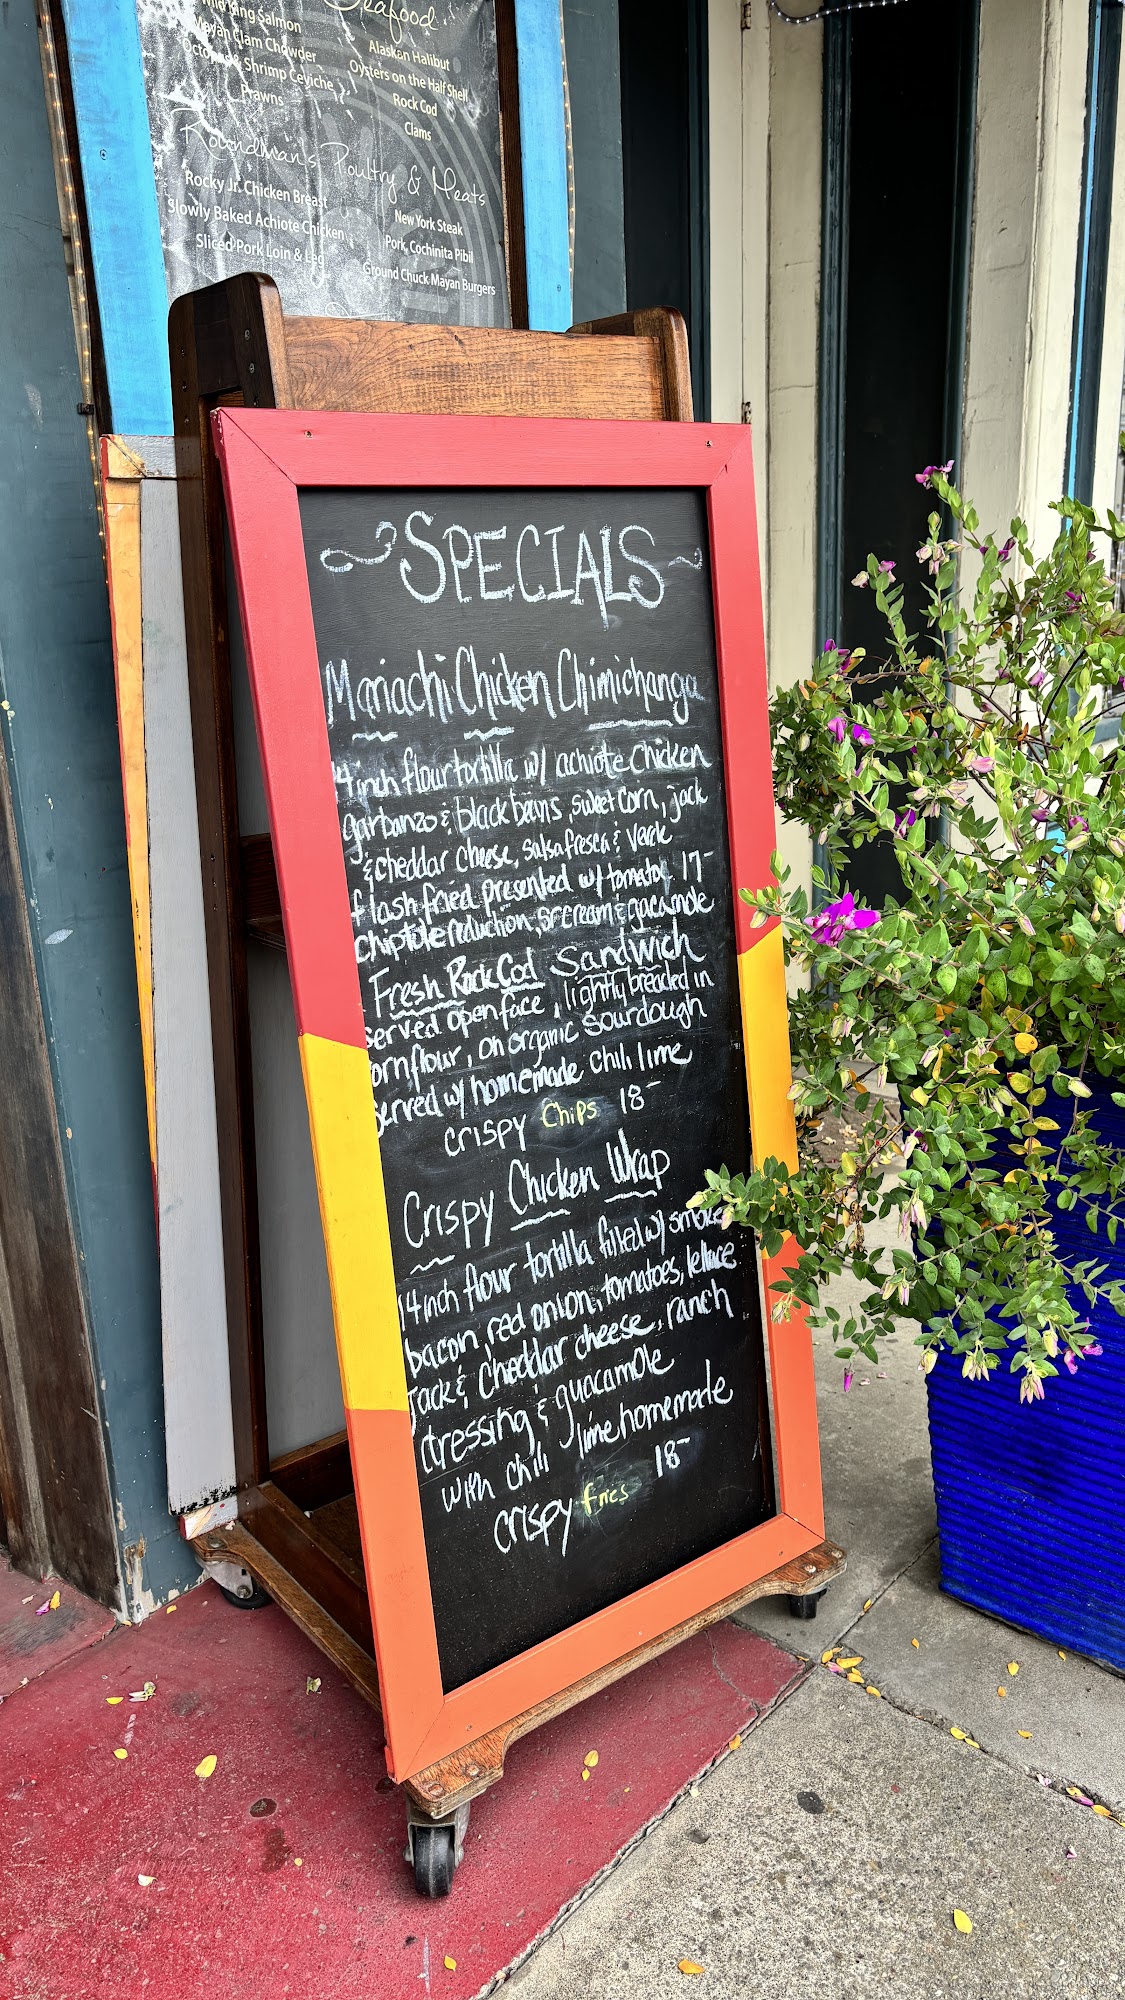 Seafood
Wild King Salmon
Mayan Clam Chowder
Octopus & Shrimp Ceviche
Prawns
Alaskan Halibut
Oysters on the Half Shell
Rock Cod
Clams
Roundman's Poultry & Meats
Rocky Jr. Chicken Breast
Slowly Baked Achiote Chicken
Sliced Pork Loin & Leg
New York Steak
Pork Cochinita Pibil
Ground Chuck Mayan Burgers
SPECIALS
Mariachi Chicken Chimichanga
14 inch flour tortilla w/ achiote chicken
garbanzo & black beans, sweet corn, jack
& cheddar cheese, salsa fresca & verde
flash fried presented w/ tomato 17-
chiptole reduction, sr cream & gacamole
Fresh Rock Cod Sandwich
served open face, lightly breaded in
cornflour, on organic sourdough
served w/ homemade chili lime
crispy Chips 18-
Crispy Chicken Wrap
14 inch flour tortilla filled w/ smoke
bacon, red onion, tomatoes, lettuce
Jack & cheddar cheese, ranch
dressing & guacamole
with chili lime homemade
crispy fries 18-